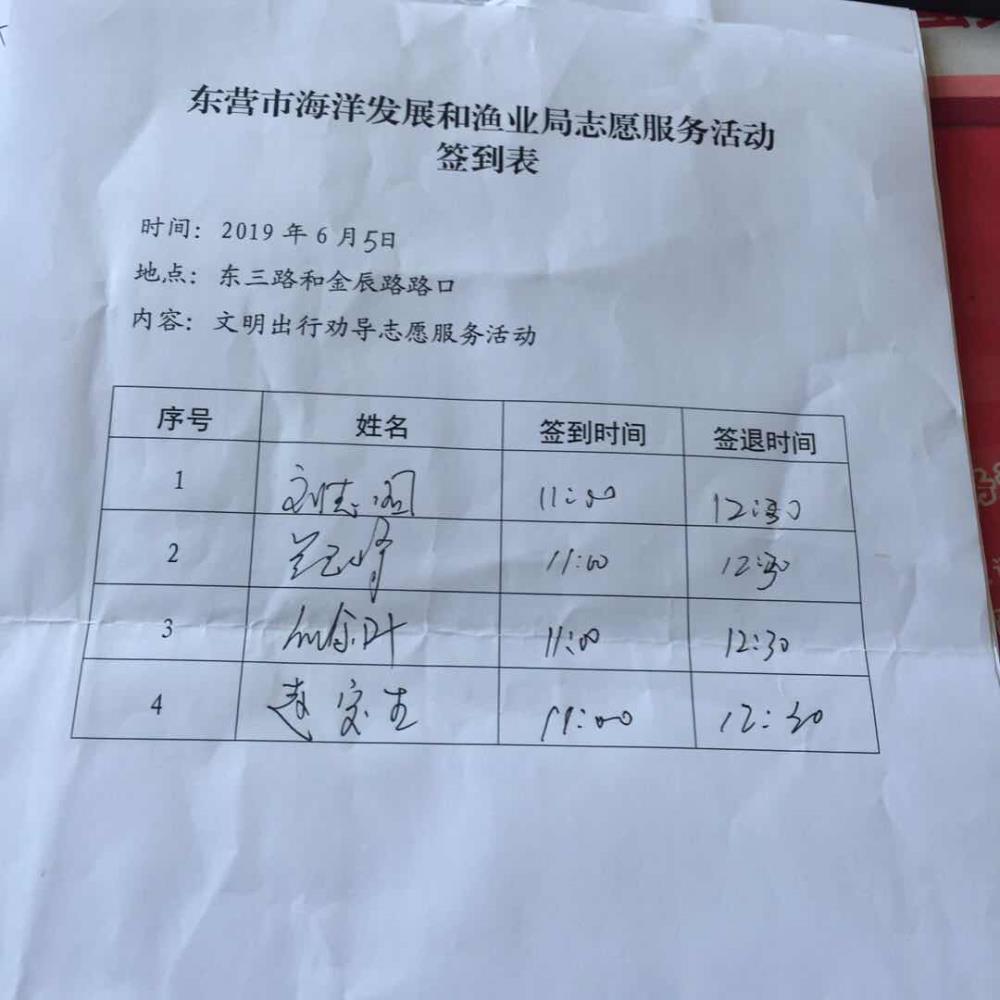 东营市海洋发展和渔业局志愿服务活动
签到表
时间：2019 年 6 月 5日
地点：东三路和金辰路路口
内容：文明出行劝导志愿服务活动
序号 姓名 签到时间 签退时间
1 11:00 12:30
2 11:00 12:30
3 11:00 12:30
4 11:00 12:30